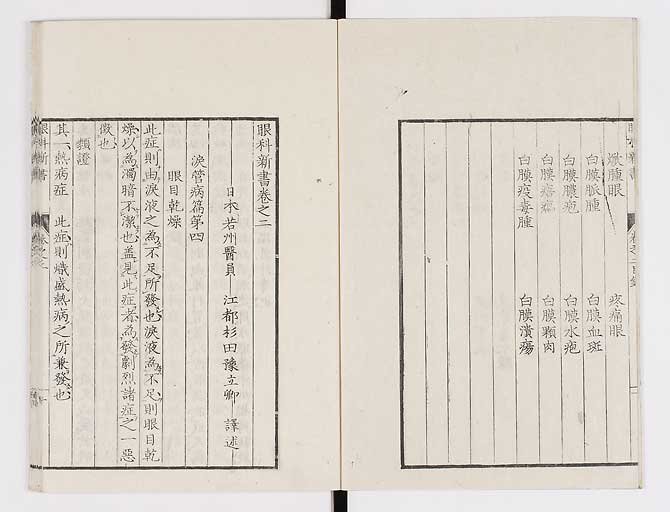 焮腫眼 疼痛眼
白膜脈腫 白膜血斑
白膜膿疱 白膜水疱
白膜 白膜顆肉
白膜疫毒腫 白膜潰瘍
眼科新書卷之二
日本 若州醫員 江都杉田豫立卿 譯述
淚管病篇第四
眼目乾燥
此症則由淚液之為不足所發也淚液為不足則眼目乾
燥以為濁暗不潔也蓋見此症者為發劇烈諸症之一惡
徵也
類證
其一熱病症 此症則熾盛熱病之所兼發也
眼科新書